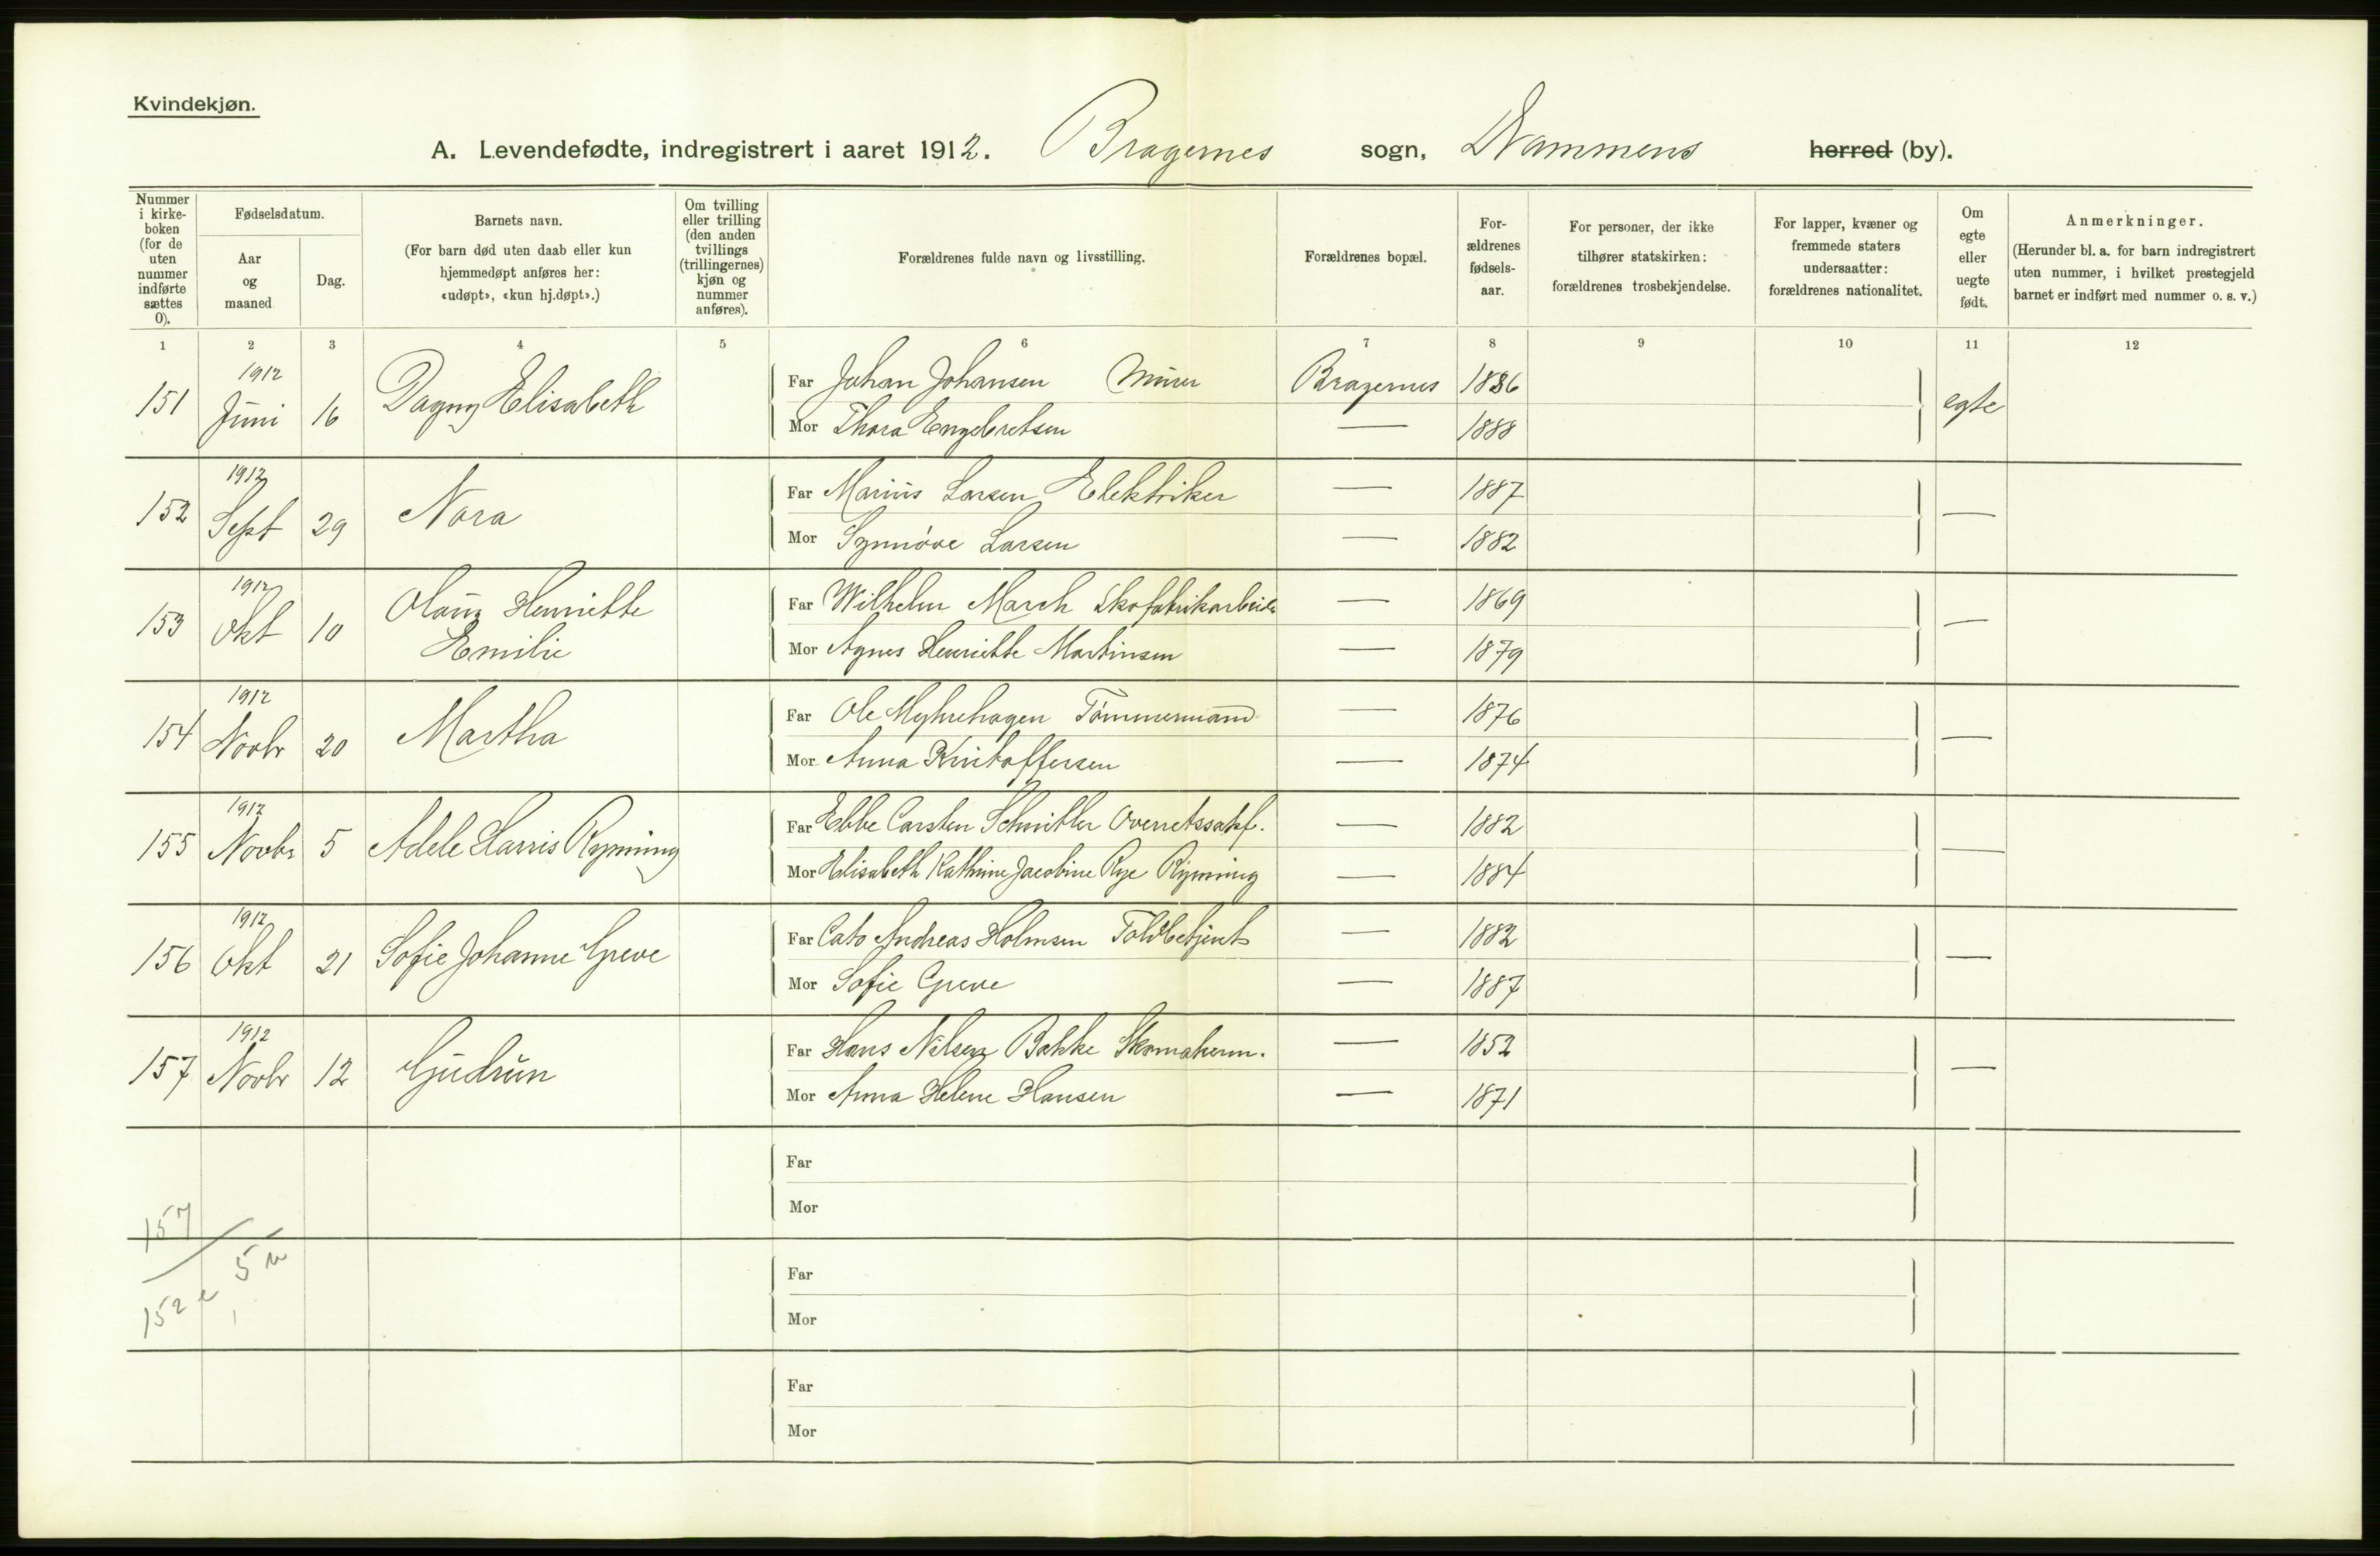 Kvindekjøn.
A. Levendefødte, indregistrert i aaret 1912. Bragernes sogn, Drammens herred (by).
Nummer i kirke-boken (for de uten nummer indførte sættes 0).
Fødselsdatum.
Aar og maaned.
Dag.
Barnets navn.
(For barn død uten daab eller kun hjemmedøpt anføres her: «udøpt», «kun hj.døpt».)
Om tvilling eller trilling (den anden tvillings (trillingernes) kjøn og nummer anføres).
Forældrenes fulde navn og livsstilling.
Forældrenes bopæl.
For-ældrenes fødsels-aar.
For personer, der ikke tilhører statskirken: forældrenes trosbekjendelse.
For lapper, kvæner og fremmede staters undersaatter: forældrenes nationalitet.
Om egte eller uegte født.
Anmerkninger.
(Herunder bl. a. for barn indregistrert uten nummer, i hvilket prestegjeld barnet er indført med nummer o. s. v.)
1 2 3 4 5 6 7 8 9 10 11 12
151 1912 Juni 16 Dagny Elisabeth Far Johan Johansen Murer Bragernes 1886 egte
Mor Thora Engebretsen — 1888
152 1912 Sept 29 Nora Far Marius Larsen Elektriker — 1887 —
Mor Synnöve Larsen — 1882
153 1912 Okt 10 Henriette Emilie Far Wilhelm March Skofabrikarbeider — 1869 —
Mor Agnes Henriette Martinsen — 1879
154 1912 Novbr 20 Martha Far Ole Myhrehagen Tömmermand — 1876 —
Mor Anna Kristoffersen — 1874
155 1912 Novbr 5 Adele Harris Rynning Far Ebbe Carsten Schnitler Overretssakf. — 1882 —
Mor Elisabeth Kathrine Jacobine Rye Rynning — 1884
156 1912 Okt 21 Sofie Johanne Greve Far Cato Andreas Holmsen Toldbetjent — 1882 —
Mor Sofie Greve — 1887
157 1912 Novbr 12 Gudrun Far Hans Nilsen Bakke Skomakerm. — 1852 —
Mor Anna Helene Hansen — 1871
Far
Mor
157
Far
152 e 5 u
Mor
Far
Mor